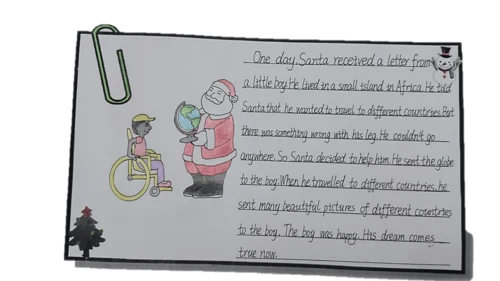 One day, Santa received a letter from
a little boy. He lived in a small island in Africa. He told
Santa that he wanted to travel to different countries. But
there was something wrong with his leg. He couldn't go
anywhere. So Santa decided to help him. He sent the globe
to the boy. When he travelled to different countries, he
sent many beautiful pictures of different countries
to the boy. The boy was happy. His dream comes
true now.